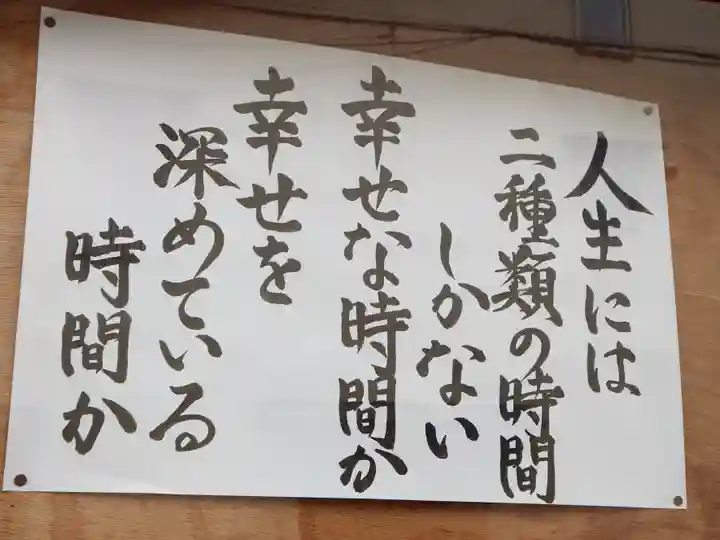 人生には
二種類の時間
しかない
幸せな時間か
幸せを
深めている
時間か